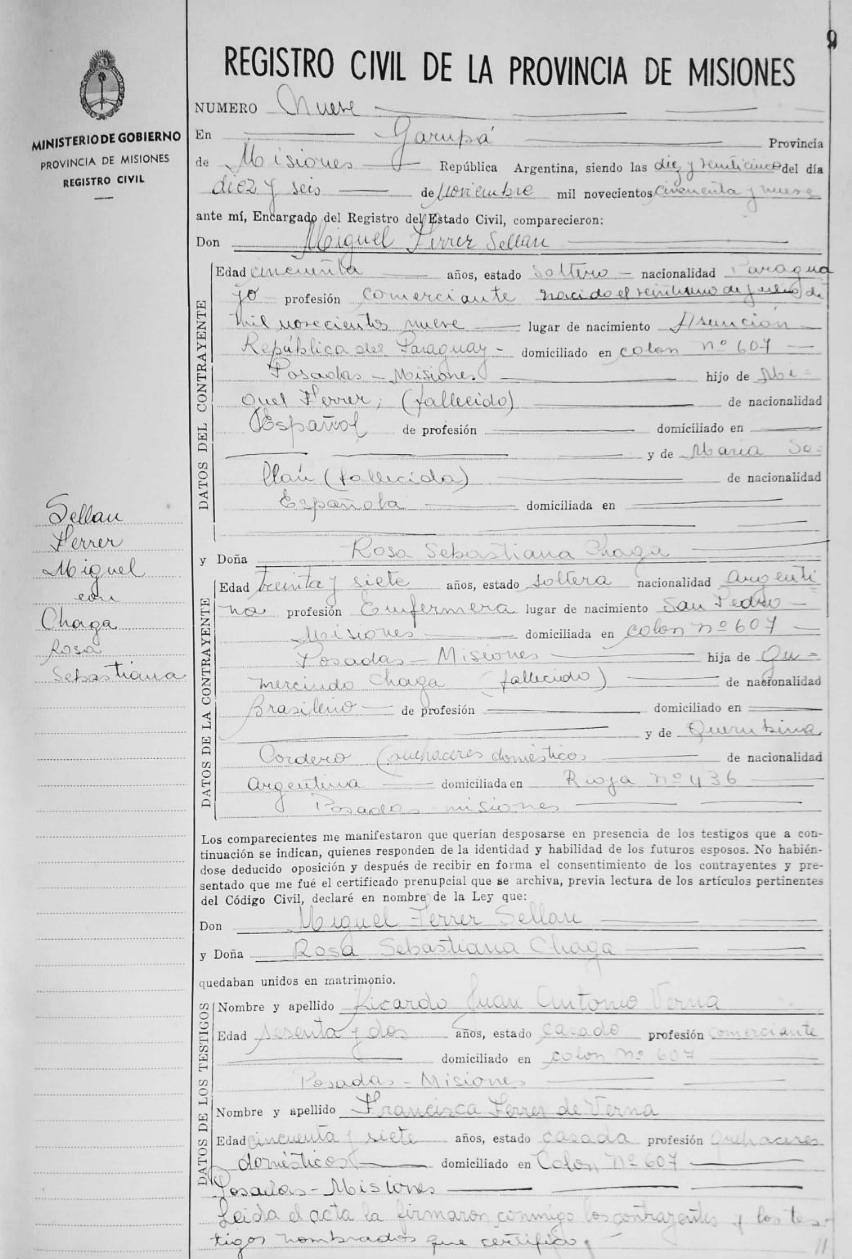 9
MINISTERIO DE GOBIERNO
PROVINCIA DE MISIONES
REGISTRO CIVIL
Sellan
Ferrer
Miguel
con
Chaga
Rosa
Sebastiana
REGISTRO CIVIL DE LA PROVINCIA DE MISIONES
NUMERO Nueve
En Garupá Provincia
de Misiones República Argentina, siendo las diez y veinticinco del día
diez y seis de Noviembre mil novecientos cincuenta y nueve
ante mí, Encargado del Registro del Estado Civil, comparecieron:
Don Miguel Ferrer Sellan
DATOS DEL CONTRAYENTE
Edad cincuenta años, estado Soltero - nacionalidad Paragua
yo profesión comerciante nacido el veintiuno de de
mil novecientos nueve lugar de nacimiento Asunción -
República del Paraguay - domiciliado en colon nº 607
Posadas - Misiones hijo de Mi-
guel Ferrer, (fallecido) de nacionalidad
Español de profesión domiciliado en
y de Maria Se-
llán (fallecida) de nacionalidad
Española domiciliada en
y Doña Rosa Sebastiana Chaga
DATOS DE LA CONTRAYENTE
Edad treinta y siete años, estado Soltera nacionalidad Argenti
na profesión Enfermera lugar de nacimiento San Pedro -
Misiones domiciliado en colon nº 607
Posadas - Misiones hija de Gu-
mercindo Chaga (fallecido) de nacionalidad
Brasileño de profesión domiciliado en
y de Querubina
Cordero (quehaceres domésticos de nacionalidad
Argentina domiciliada en Rioja nº 436
Posadas misiones
Los comparecientes me manifestaron que querían desposarse en presencia de los testigos que a con-
tinuación se indican, quienes responden de la identidad y habilidad de los futuros esposos. No habién-
dose deducido oposición y después de recibir en forma el consentimiento de los contrayentes y pre-
sentado que me fué el certificado prenupcial que se archiva, previa lectura de los artículos pertinentes
del Código Civil, declaré en nombre de la Ley que:
Don Miguel Ferrer Sellan
y Doña Rosa Sebastiana Chaga
quedaban unidos en matrimonio.
DATOS DE LOS TESTIGOS
Nombre y apellido Ricardo Juan Antonio Verna
Edad sesenta y dos años, estado casado profesión comerciante
domiciliado en colon nº 607
Posadas - Misiones
Nombre y apellido Francisca Ferrer de Verna
Edad cincuenta y siete años, estado casada profesión quehaceres
domésticos domiciliado en Colon nº 607
Posadas - Misiones
Leida el acta la firmaron conmigo los contrayentes y los tes-
tigos nombrados que certifico,